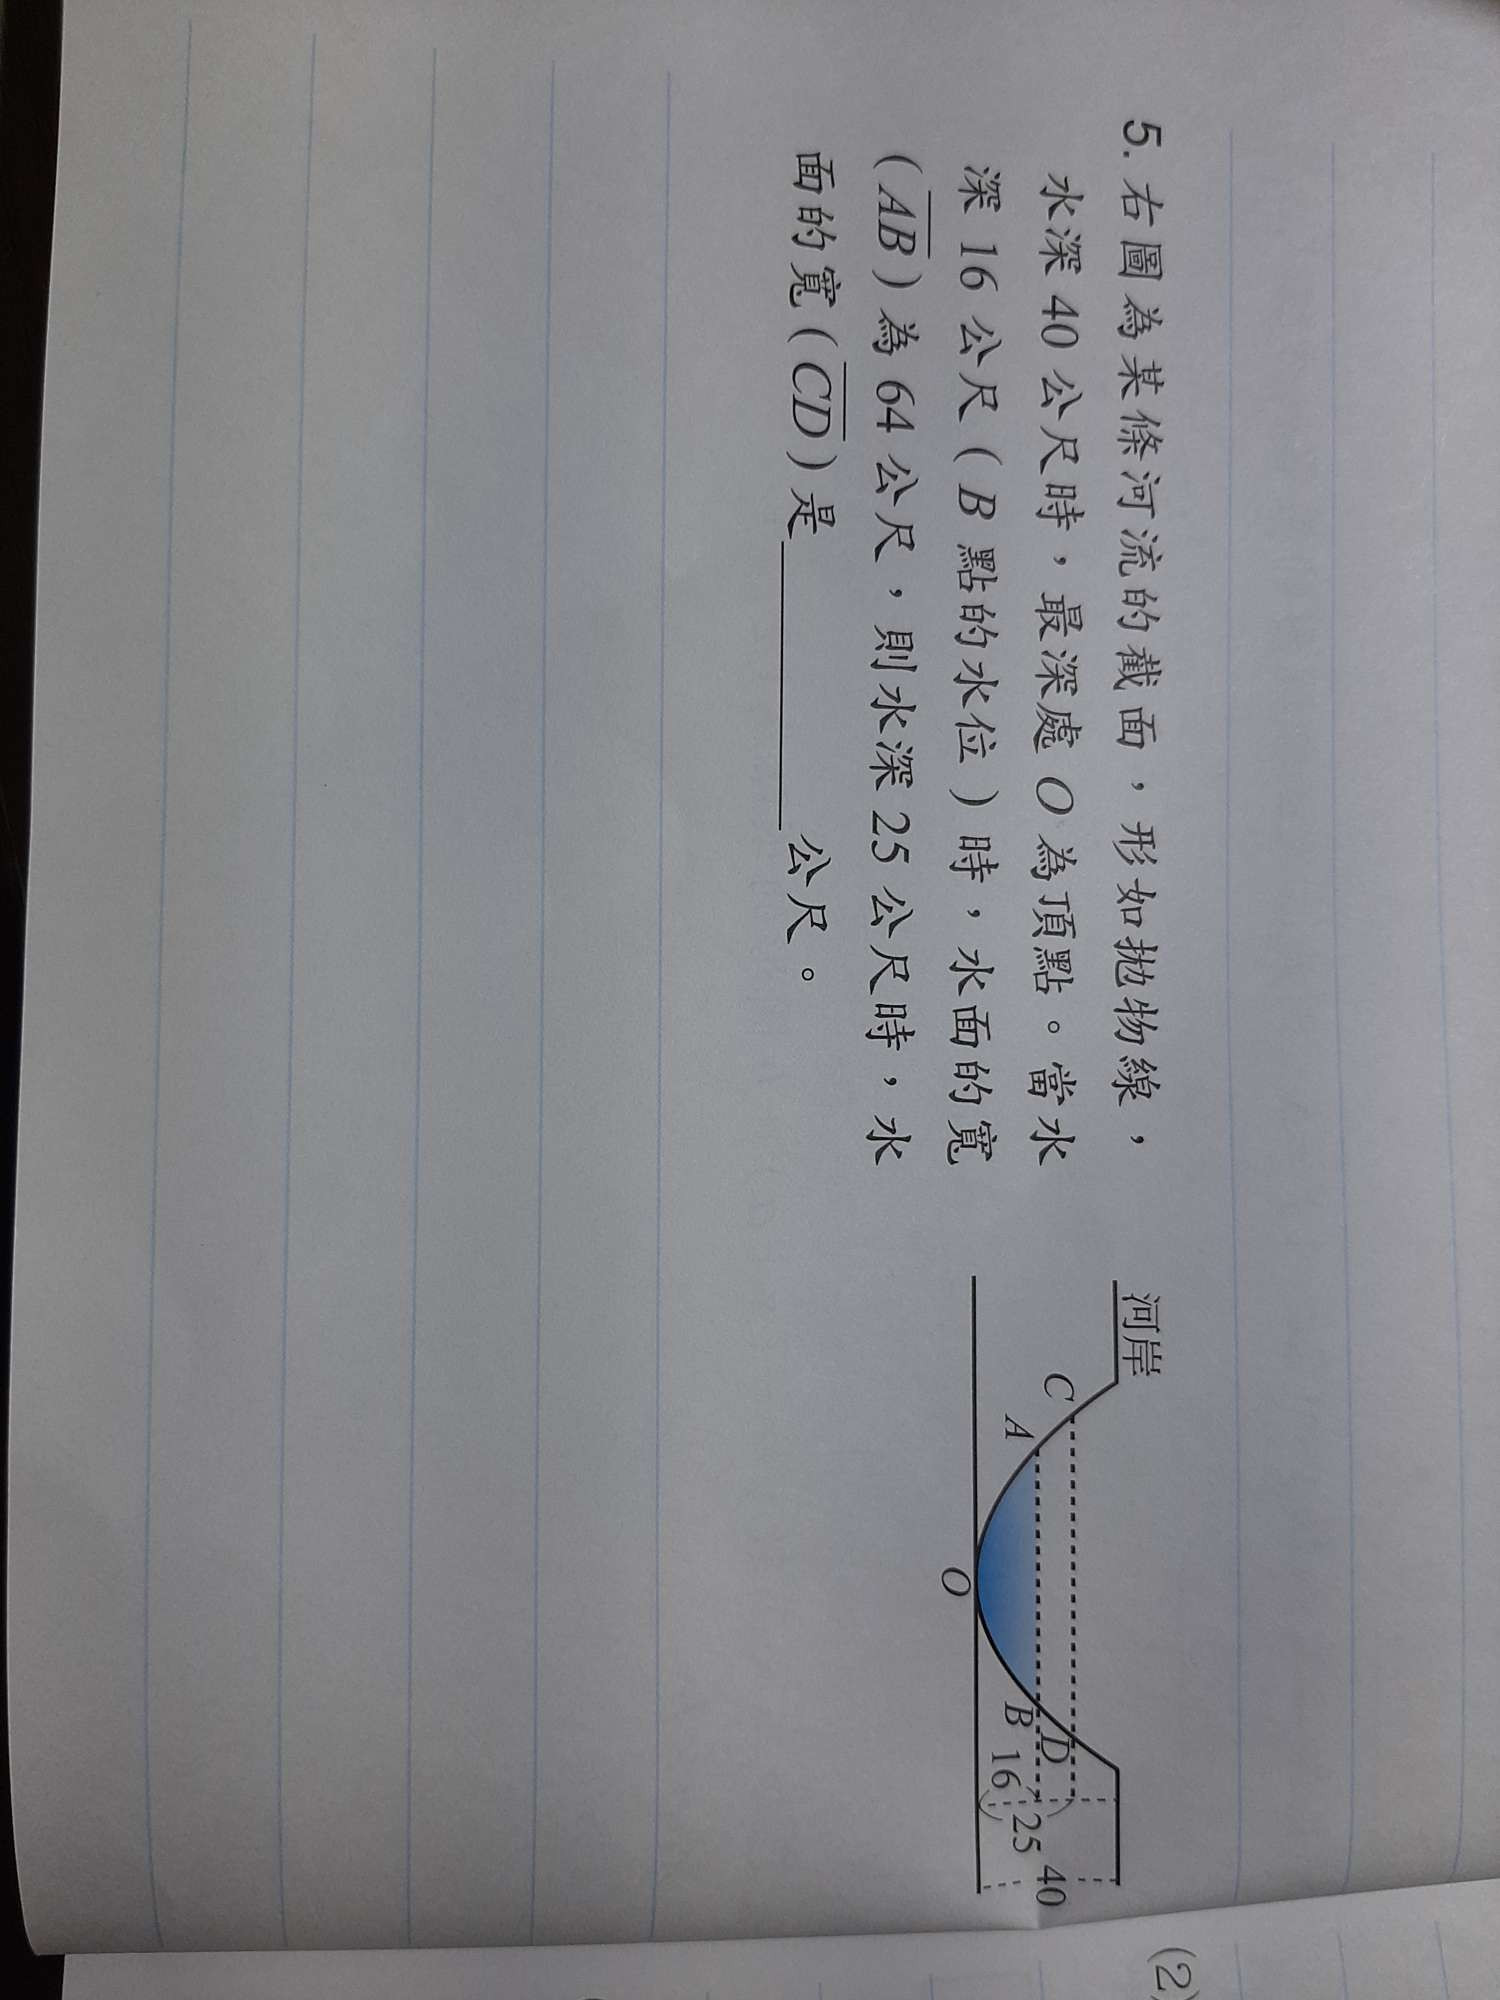 5. 右圖為某條河流的截面，形如拋物線，
水深 40 公尺時，最深處 O 為頂點。當水
深 16 公尺（B 點的水位）時，水面的寬
（AB）為 64 公尺，則水深 25 公尺時，水
面的寬（CD）是__________公尺。
河岸
C
D
A
B
O
16
25
40
(2)